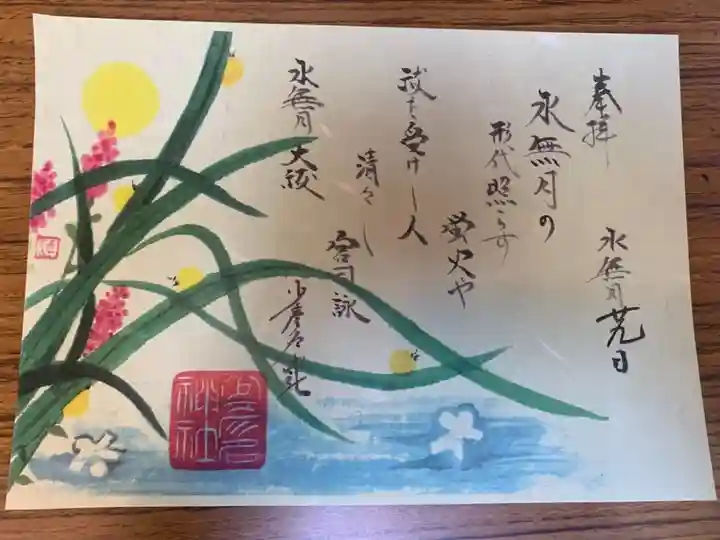 奉拝
水無月晦日
水無月の
形代照らす
蛍火や
祓を受けし人
清々し
宮司詠
水無月大祓
神社